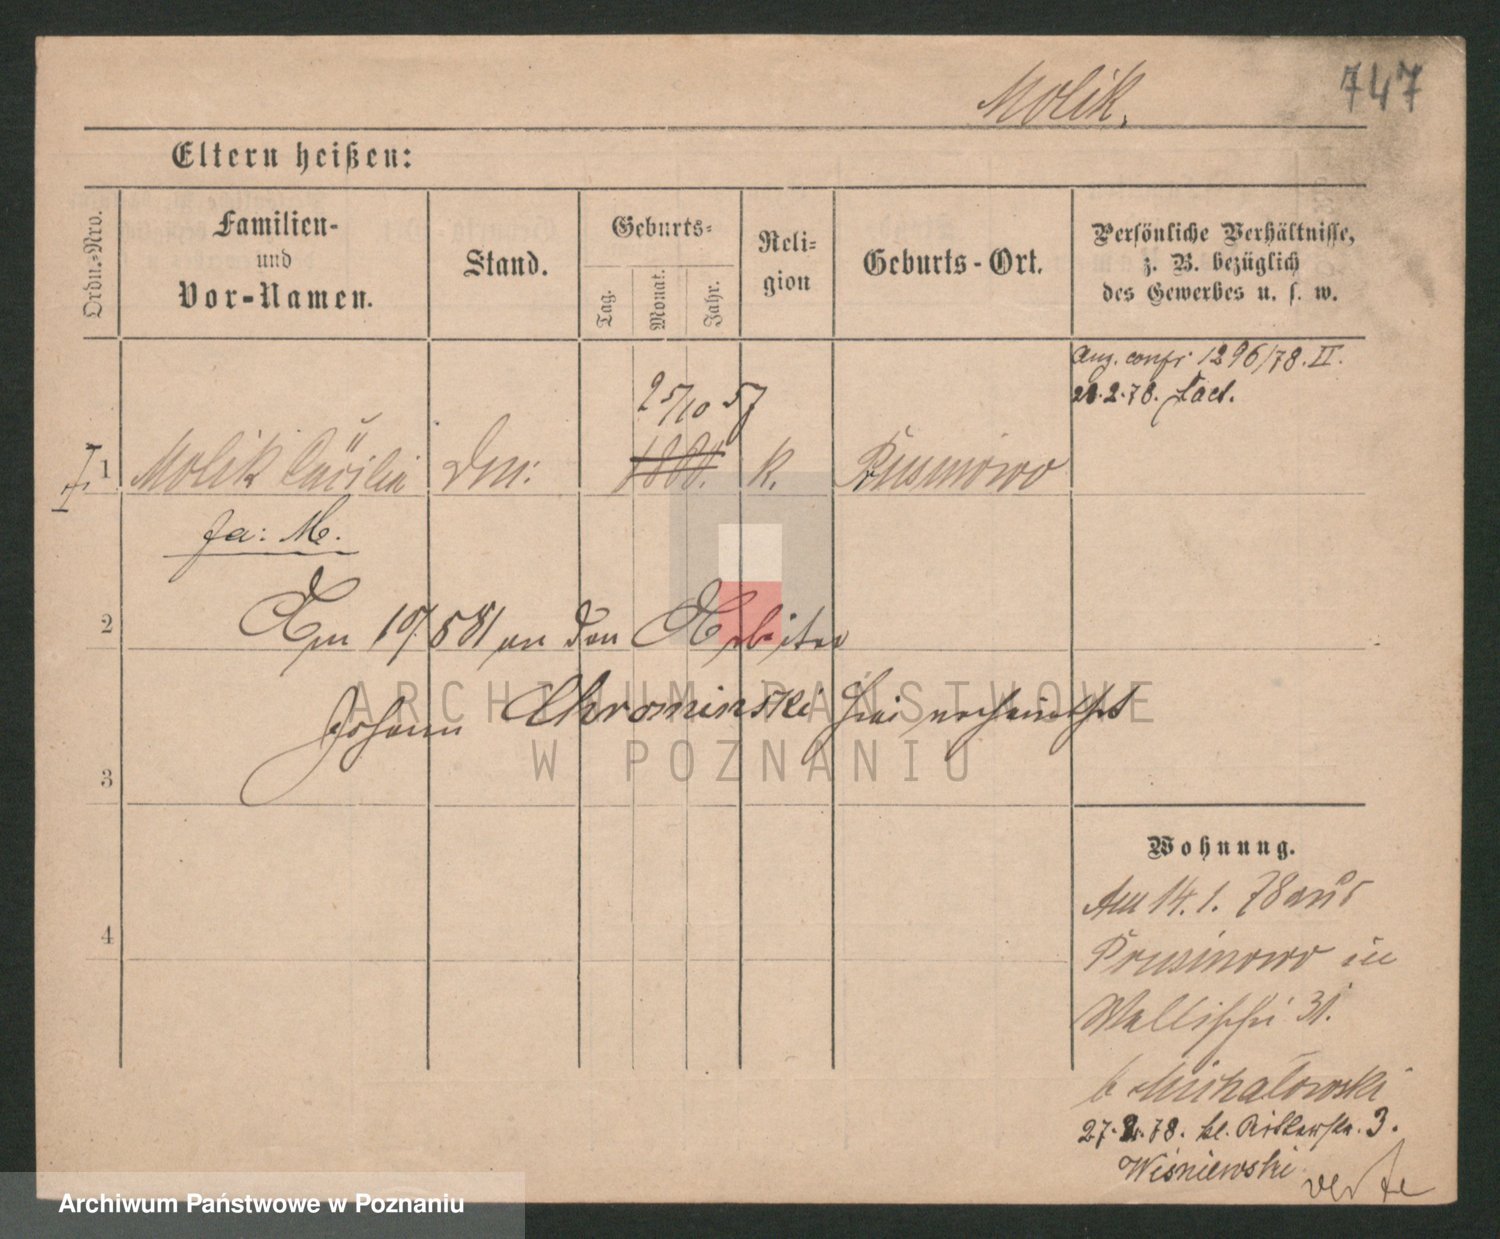 747
Molik.
Eltern heißen:
Ordn.-Nro.
Familien-
und
Vor-Namen.
Stand.
Geburts-
Tag.
Monat.
Jahr.
Reli-
gion
Geburts-Ort.
Persönliche Verhältnisse,
z. B. bezüglich
des Gewerbes u. s. w.
Anz. confr 1296/78. II.
2.78.
25/10 57
1 Molik Cäcilie K. Prusinowo
2 Am an den Arbeiter
Johann Chrominski hier verheirathet
3
4
Wohnung.
Am 14.1.78 aus
Prusinowo in
Wallischei 31.
b Michalowski
27.2.78. kl. Ritterstr. 3.
Wiśniewski
verte
ARCHIWUM PAŃSTWOWE
W POZNANIU
Archiwum Państwowe w Poznaniu